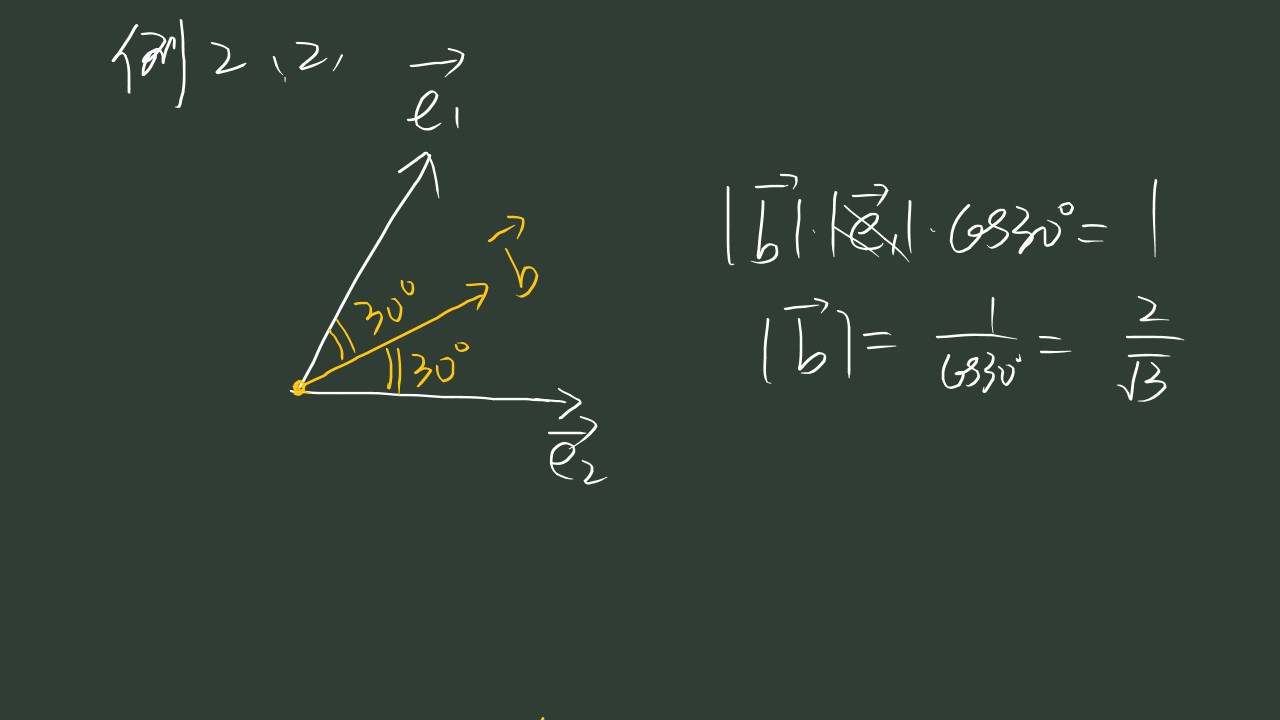 例2、2,
→
e₁
→
b
30°
30°
→
e₂
|b⃗|·|e⃗₁|·cos30°=1
|b⃗|=1/cos30°=2/√3